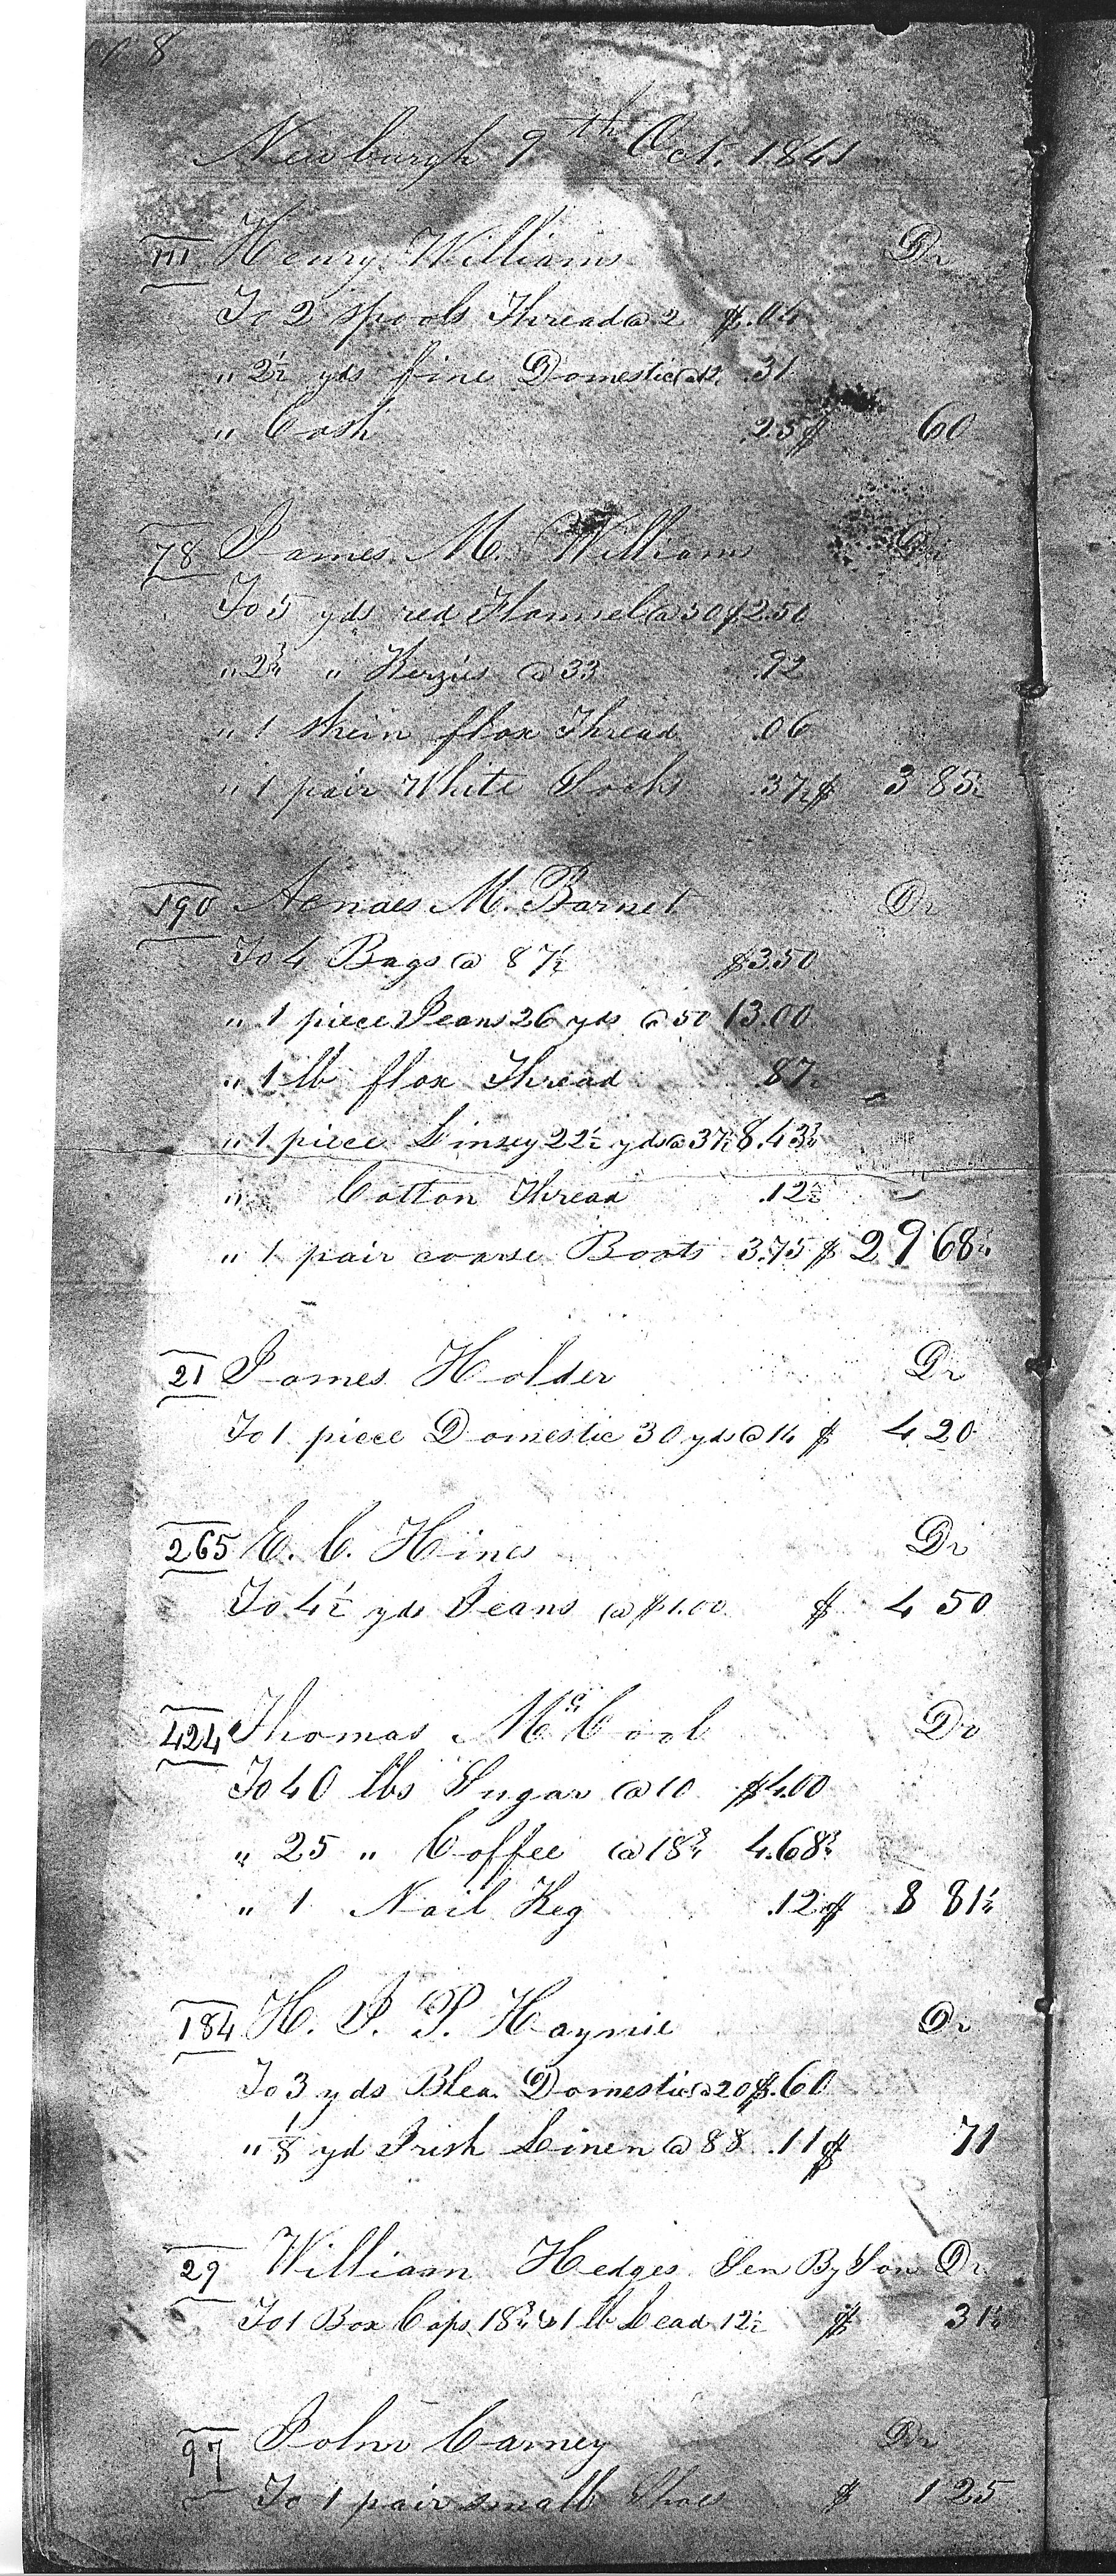 8
Newburgh 9th Oct. 1841
111 Henry Williams Dr
To 2 spools Thread @ 2 $.04
" 2½ yds fine Domestic @ 12½ .31
" Cash .25 $ 60
78 James M. Williams Dr
To 5 yds red Flannel @ 50 $2.50
" 2¾ " Kerzies @ 33 .92
" 1 skein flax Thread .06
" 1 pair White Socks .37½ $ 3 85½
190 Aenaes M. Barnet Dr
To 4 Bags @ 87½ $3.50
" 1 piece Jeans 26 yds @ 50 13.00
" 1 lb flax Thread .87½
" 1 piece Linsey 22½ yds @ 37½ 8.43¾
" Cotton Thread .12½
" 1 pair coarse Boots 3.75 $ 29 68¾
21 James Holder Dr
To 1 piece Domestic 30 yds @ 14 $ 4 20
265 E. C. Hines Dr
To 4½ yds Jeans @ $1.00 $ 4 50
424 Thomas McCool Dr
To 40 lbs Sugar @ 10 $4.00
" 25 " Coffee @ 18¾ 4.68¾
" 1 Nail Keg .12½ $ 8 81¼
184 H. J. P. Haymie Dr
To 3 yds Blea. Domestic @ 20 $.60
" ⅛ yd Irish Linen @ 88 .11 $ 71
29 William Hedges Sen By Son Dr
To 1 Box Caps 18¾ & 1 lb Lead 12½ $ 31¼
97 John Carney Dr
To 1 pair small Shoes $ 1 25